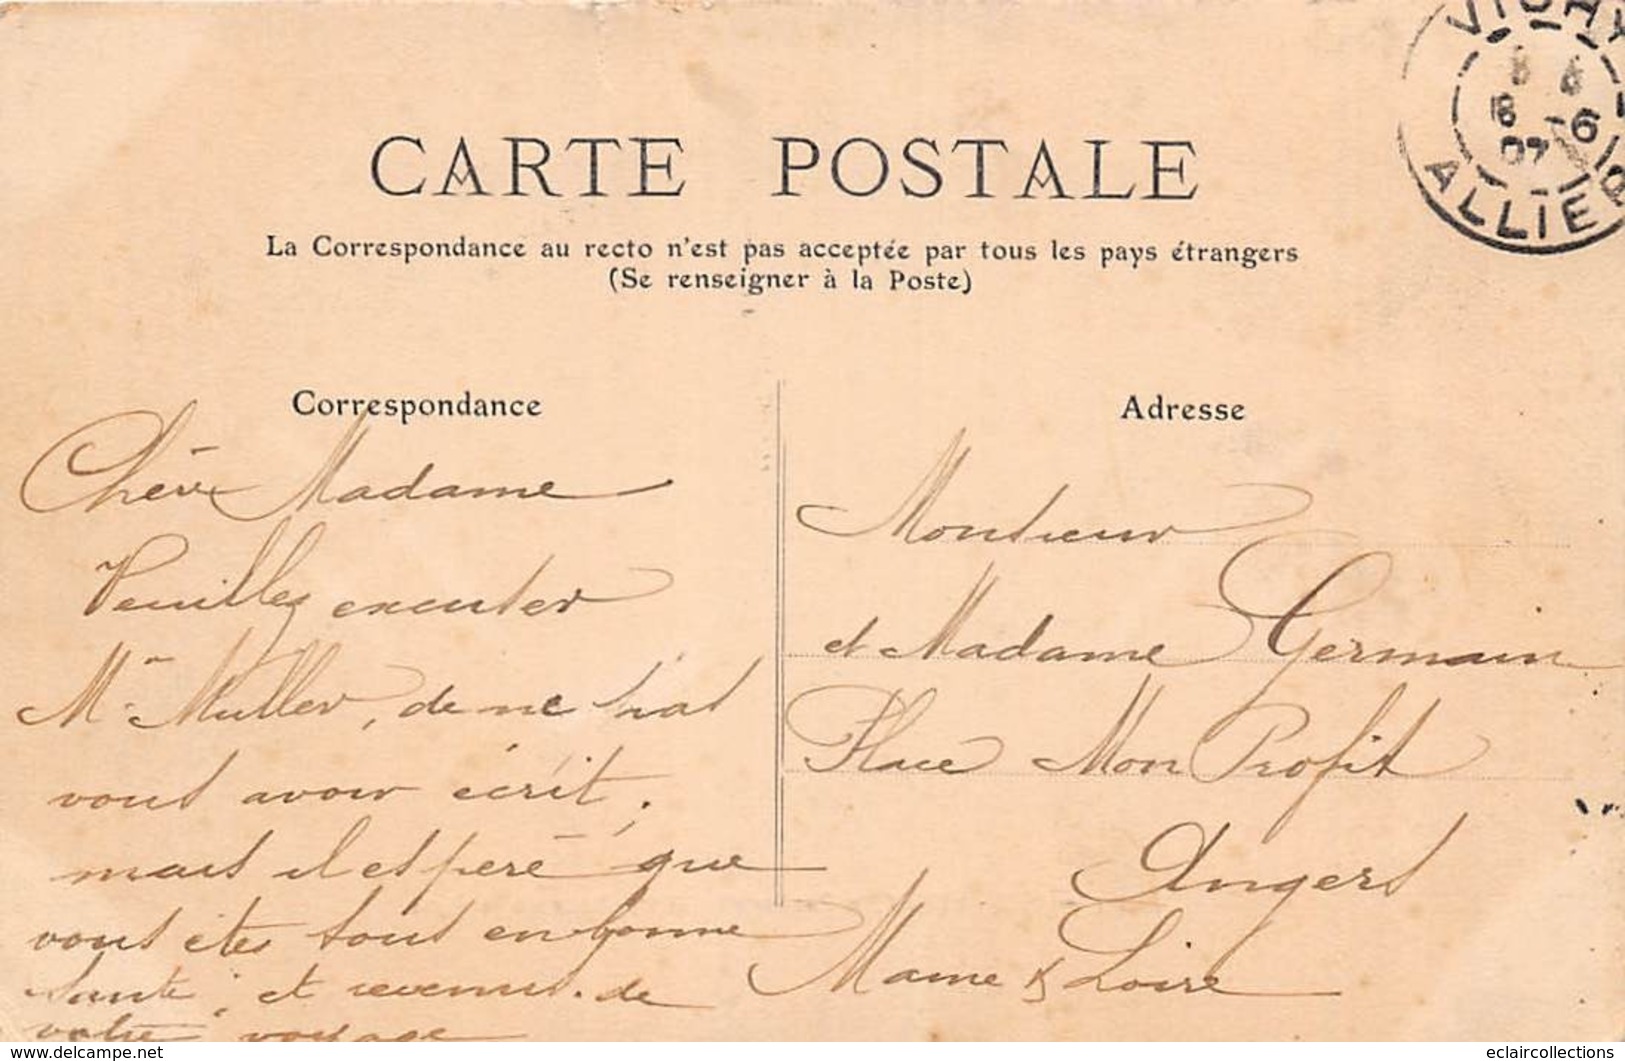 VICHY
8 -6
07
ALLIER
CARTE POSTALE
La Correspondance au recto n'est pas acceptée par tous les pays étrangers
(Se renseigner à la Poste)
Correspondance
Adresse
Chère Madame
Veuillez excuser
Mr Muller, de ne pas
vous avoir écrit,
mais il espère que
vous êtes tous en bonne
santé, et revenus de
votre voyage
Monsieur
et Madame Germain
Place Mon Profit
Angers
Maine & Loire
© eclaircollections - delcampe.net
eclaircollections